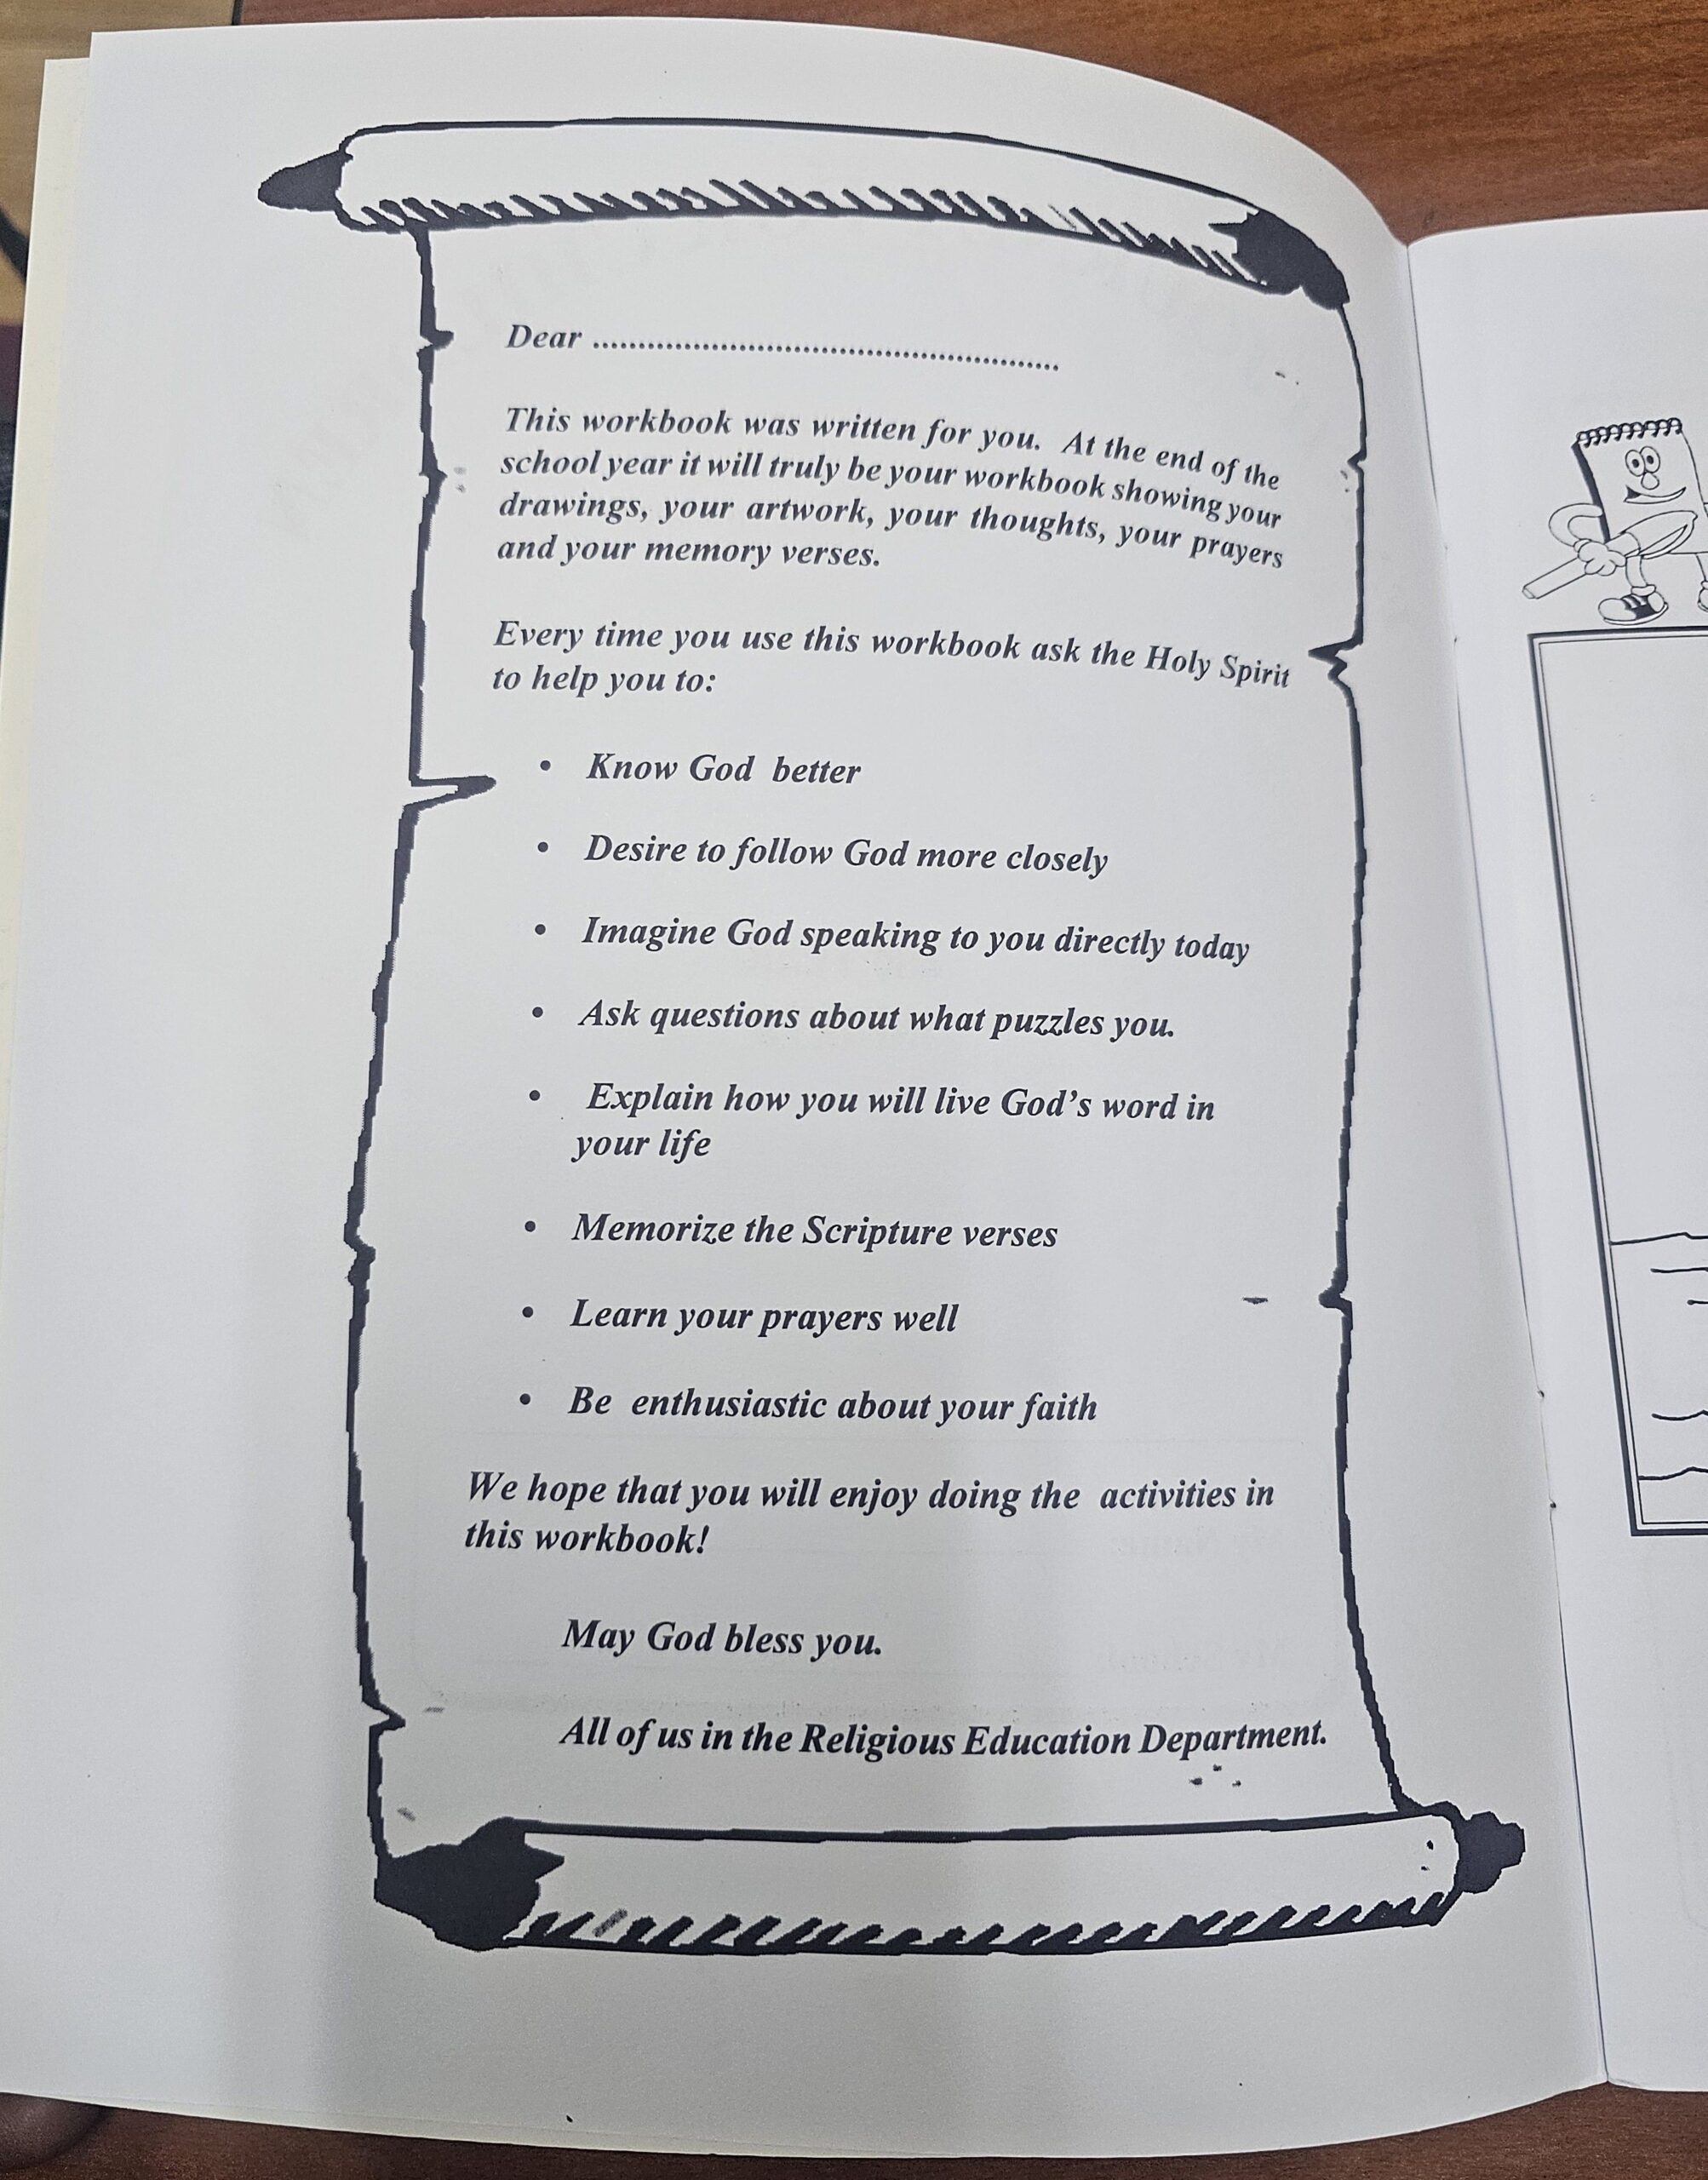 Dear ....................................................
This workbook was written for you. At the end of the
school year it will truly be your workbook showing your
drawings, your artwork, your thoughts, your prayers
and your memory verses.
Every time you use this workbook ask the Holy Spirit
to help you to:
• Know God better
• Desire to follow God more closely
• Imagine God speaking to you directly today
• Ask questions about what puzzles you.
• Explain how you will live God's word in
your life
• Memorize the Scripture verses
• Learn your prayers well
• Be enthusiastic about your faith
We hope that you will enjoy doing the activities in
this workbook!
May God bless you.
All of us in the Religious Education Department.